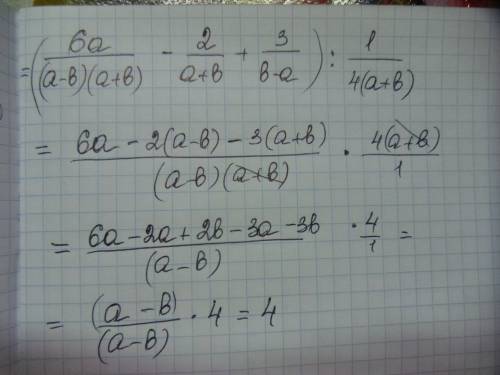 = (6a/((a-b)(a+b)) - 2/(a+b) + 3/(b-a)) : 1/(4(a+b))
= (6a - 2(a-b) - 3(a+b))/((a-b)(a+b)) · 4(a+b)/1
= (6a - 2a + 2b - 3a - 3b)/(a-b) · 4/1 =
= (a-b)/(a-b) · 4 = 4